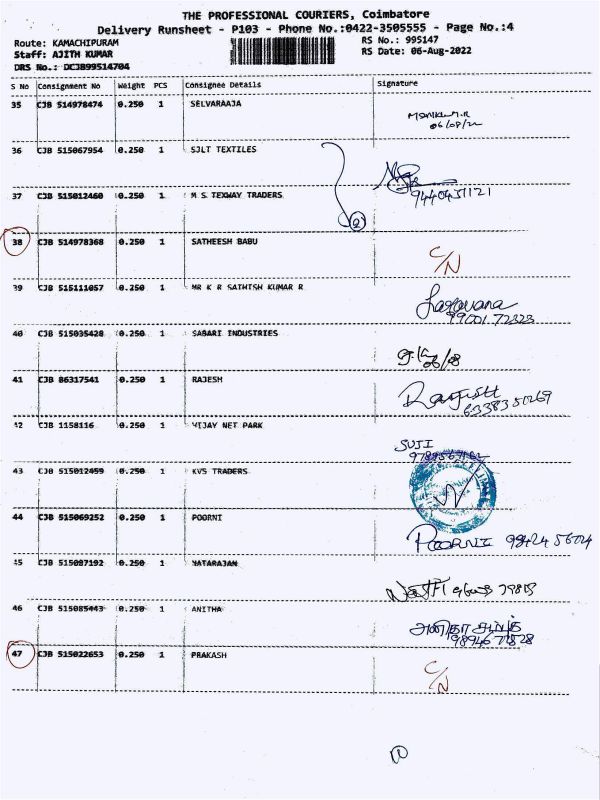 THE PROFESSIONAL COURIERS, Coimbatore
Delivery Runsheet - P103 - Phone No.:0422-3505555 - Page No.:4
Route: KAMACHIPURAM RS No.: 995147
Staff: AJITH KUMAR RS Date: 06-Aug-2022
DRS No.: DCJB99514704
S No Consignment No Weight PCS Consignee Details Signature
35 CJB 514978474 0.250 1 SELVARAAJA
06/08/22
36 CJB 515067954 0.250 1 SJLT TEXTILES
37 CJB 515012460 0.250 1 M S TEXWAY TRADERS
2
38 CJB 514978368 0.250 1 SATHEESH BABU
C/N
39 CJB 515111057 0.250 1 MR K R SATHISH KUMAR R
99001 72323
40 CJB 515035428 0.250 1 SABARI INDUSTRIES
41 CJB 86317541 0.250 1 RAJESH
42 CJB 1158116 0.250 1 VIJAY NET PARK
SUJI
43 CJB 515012459 0.250 1 KVS TRADERS
44 CJB 515069252 0.250 1 POORNI
POORNI
45 CJB 515087192 0.250 1 NATARAJAN
46 CJB 515085443 0.250 1 ANITHA
அனிதா
98946 77828
47 CJB 515022653 0.250 1 PRAKASH
C/N
11